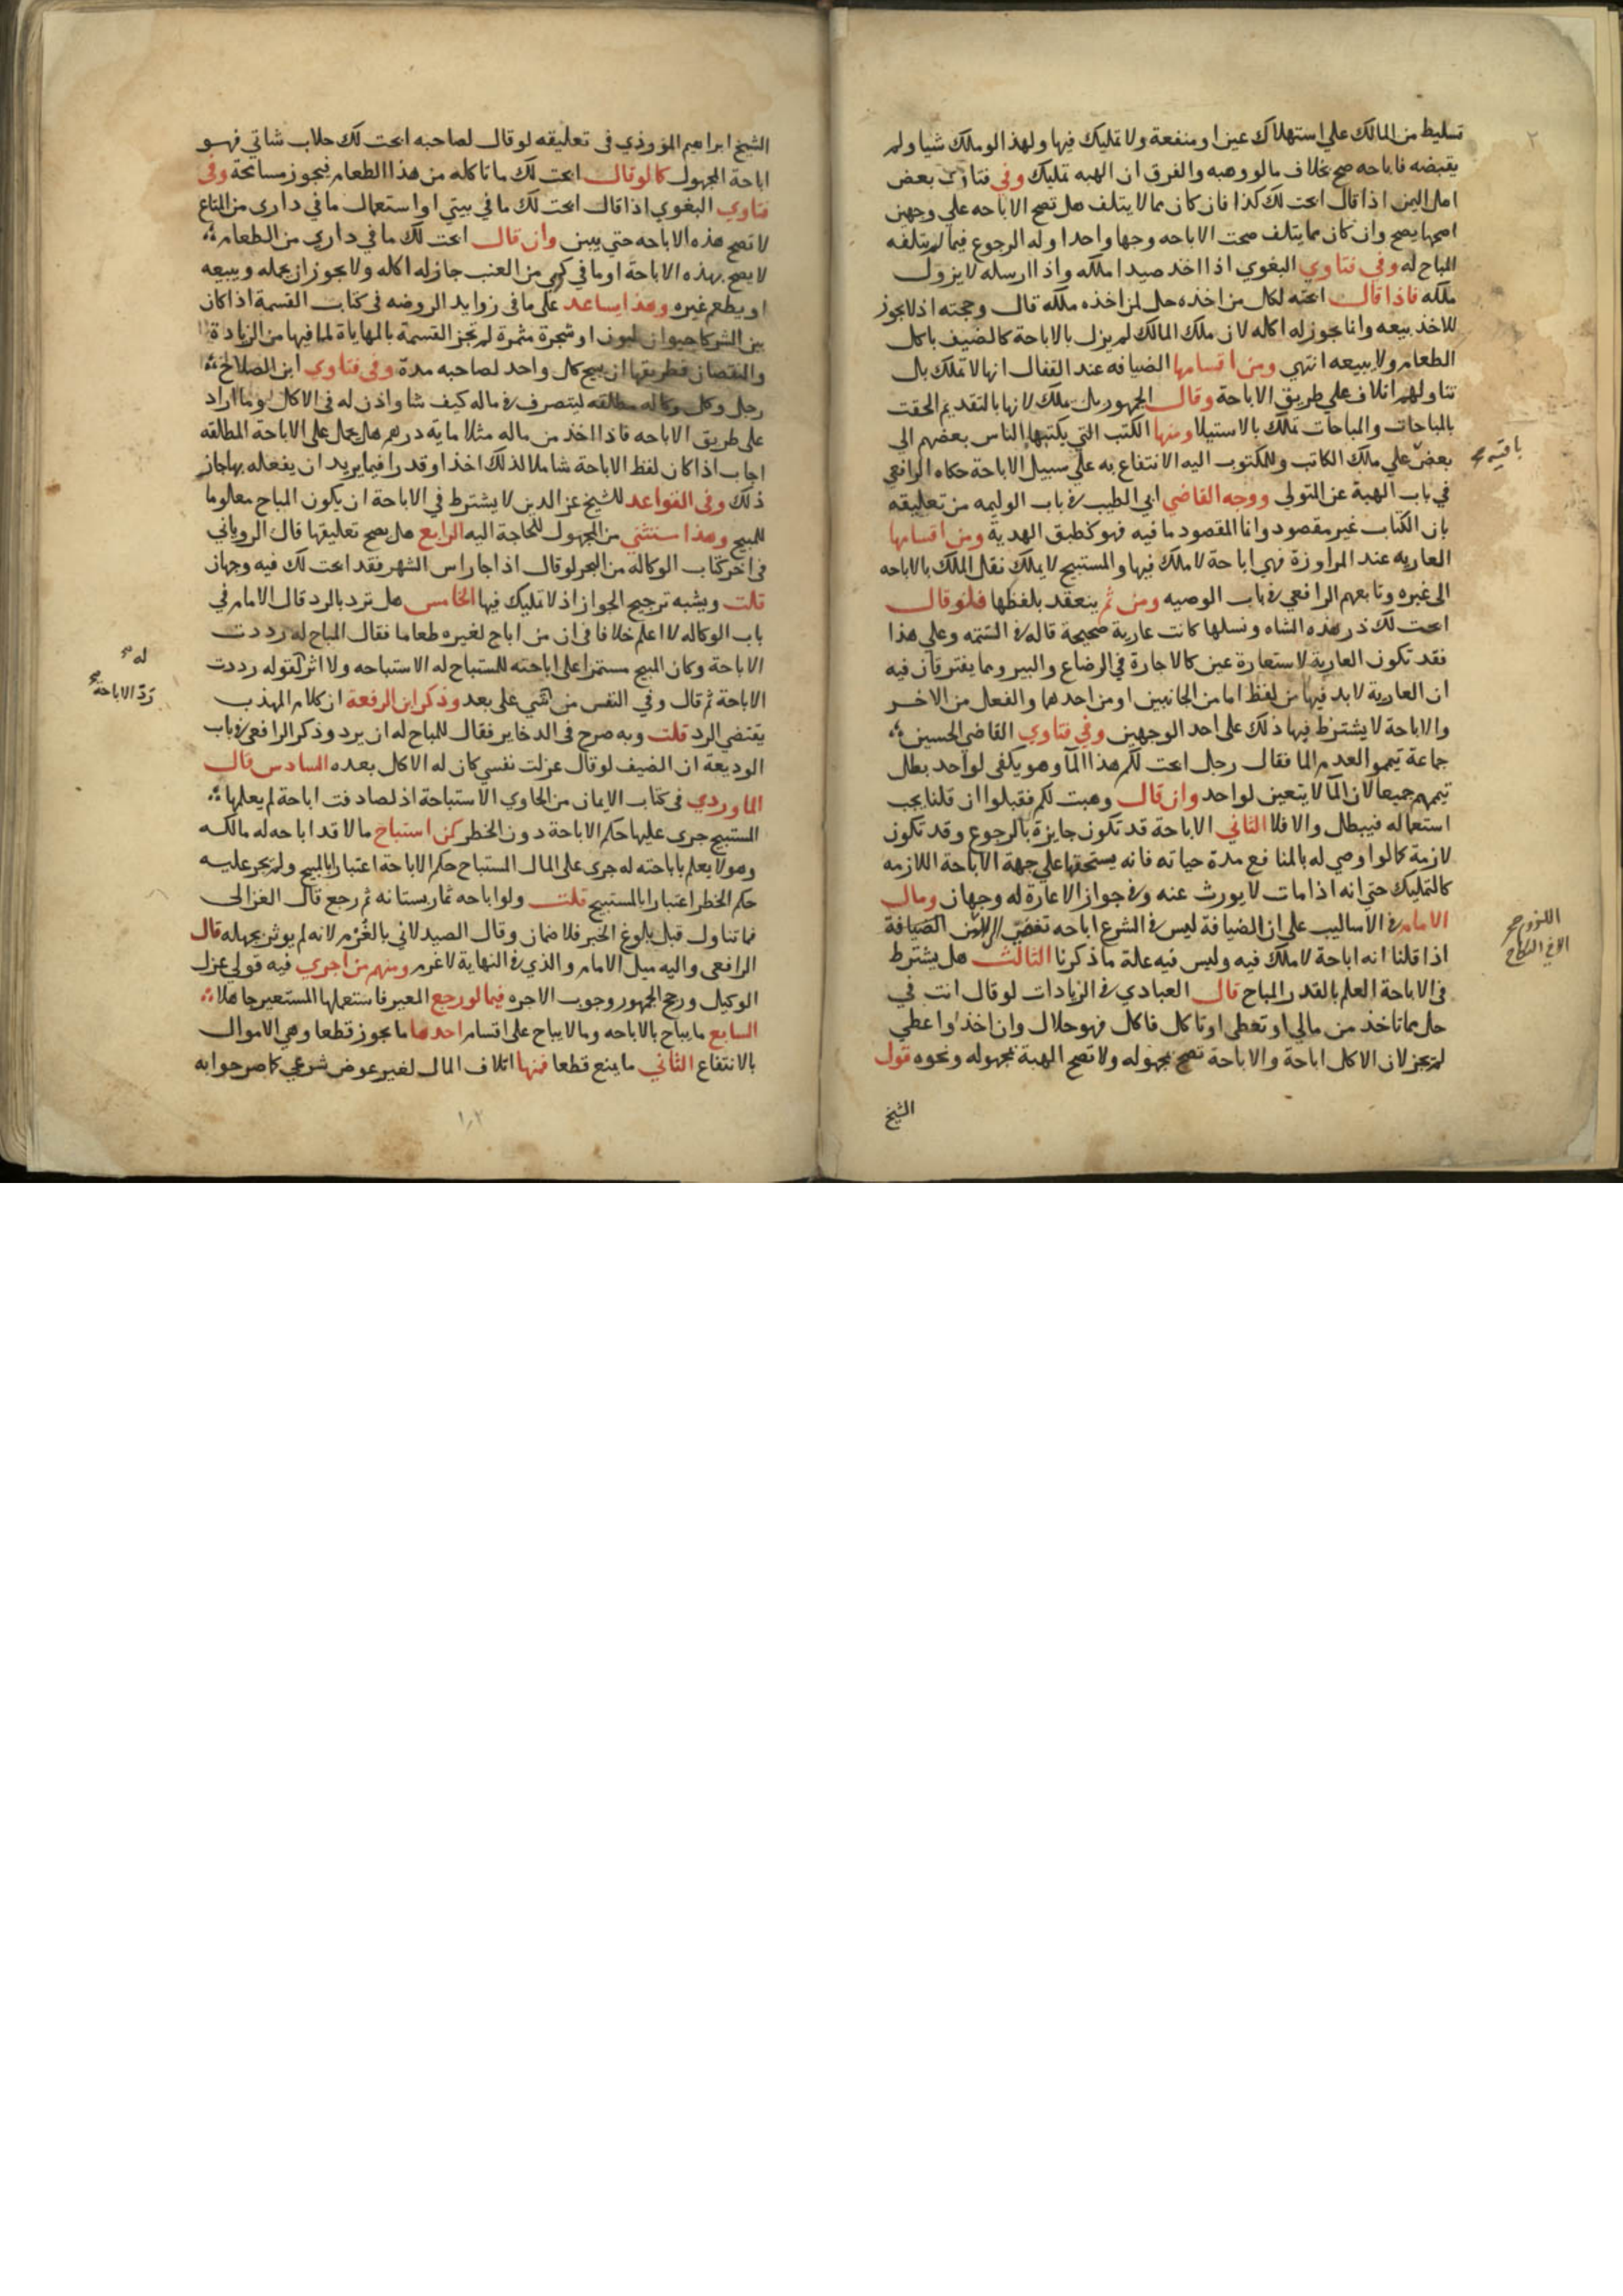 تسليط من المالك علي استهلاك عين او منفعة ولا تمليك فيها ولهذا لو ملك شيا ولم
يقبضه فاباحه صح بخلاف ما لو وهبه والفرق ان الهبه تمليك وفي فتاوي بعض
اهل اليمن اذا قال ابحت لك كذا فان كان مما لا يتلف هل تصح الاباحه علي وجهين
اصحها يصح وان كان مما يتلف صحت الاباحه وجها واحدا وله الرجوع فيما لم يتلفه
المباح له وفي فتاوي البغوي اذا اخذ صيدا ملكه واذا ارسله لا يزول
ملكه فاذا قال ابحته لكل من اخذه حل لمن اخذه ملكه قال وحجته اذ لا يجوز
للاخذ بيعه وانما يجوز له اكله لان ملك المالك لم يزل بالاباحة كالضيف ياكل
الطعام ولا يبيعه انتهي ومن اقسامها الضيافه عند القفال انها لا تملك بل
تناولهم اتلاف علي طريق الاباحة وقال الجمهور بل تملك لانها بالتقديم التحقت
بالمباحات والمباحات تملك بالاستيلا ومنها الكتب التي يكتبها الناس بعضهم الي
بعض علي ملك الكاتب وللمكتوب اليه الانتفاع به علي سبيل الاباحة حكاه الرافعي
باقيه صح
في باب الهبة عن المتولي ووجه القاضي ابي الطيب في باب الوليمه من تعليقه
بان الكتاب غير مقصود وانما المقصود ما فيه فهو كطبق الهدية ومن اقسامها
العاريه عند المراوزة فهي اباحة لا ملك فيها والمستبيح لا يملك نقل الملك بالاباحه
الى غيره وتابعهم الرافعي في باب الوصيه ومن ثم ينعقد بلفظها فلو قال
ابحت لك در هذه الشاه ونسلها كانت عارية صحيحة قاله في التتمه وعلي هذا
فقد تكون العارية لاستعارة عين كالاجارة في الرضاع والبير ومما يفترقان فيه
ان العارية لابد فيها من لفظ اما من الجانبين او من احدهما والفعل من الاخر
والاباحة لا يشترط فيها ذلك على احد الوجهين وفي فتاوي القاضي الحسين
جماعة تيمموا لعدم الما فقال رجل ابحت لكم هذا المآ وهو يكفي لواحد بطل
تيممهم جميعا لان المآ لا يتعين لواحد وان قال وهبت لكم فقبلوا ان قلنا يجب
استعماله فيبطل والا فلا الثاني الاباحة قد تكون جايزة بالرجوع وقد تكون
لازمة كما لو اوصي له بالمنافع مدة حياته فانه يستحقها علي جهة الاباحة اللازمه
كالتمليك حتي انه اذا مات لا يورث عنه وفي جواز الاعارة له وجهان ومال
الامام في الاساليب علي ان الضيافة ليس في الشرع اباحه تفضي الي الضيافة
اللزوم صح
الا في النكاح
اذا قلنا انه اباحة لا ملك فيه وليس فيه علة ما ذكرنا الثالث هل يشترط
في الاباحة العلم بالقدر المباح قال العبادي في الزيادات لو قال انت في
حل مما تاخذ من مالي او تعطي او تاكل فاكل فهو حلال وان اخذ او اعطي
لم يجز لان الاكل اباحة والاباحة تصح مجهوله ولا تصح الهبة مجهوله ونحوه قول
الشيخ
الشيخ ابراهيم المروذي في تعليقه لو قال لصاحبه ابحت لك حلاب شاتي فهو
اباحة المجهول كما لو قال ابحت لك ما تاكله من هذا الطعام فيجوز مسامحة وفي
فتاوي البغوي اذا قال ابحت لك ما في بيتي او استعمال ما في داري من المتاع
لا تصح هذه الاباحه حتي يبين وان قال ابحت لك ما في داري من الطعام
لا يصح بهذه الاباحة او ما في كرمي من العنب جاز له اكله ولا يجوز ان يحمله ويبيعه
او يطعم غيره وهذا يساعد على ما في زوايد الروضه في كتاب القسمة اذا كان
بين الشركا حيوان لبون او شجرة مثمرة لم تجز القسمة بالمهاياة لما فيها من الزيادة
والنقصان فطريقها ان يبيح كل واحد لصاحبه مدة وفي فتاوي ابن الصلاح
رجل وكل وكاله مطلقه ليتصرف في ماله كيف شا واذن له في الاكل وما اراد
على طريق الاباحه فاذا اخذ من ماله مثلا ماية درهم هل يحمل على الاباحة المطلقه
اجاب اذا كان لفظ الاباحة شاملا لذلك اخذا وقدرا فيما يريد ان يفعله بها جاز
ذلك وفي القواعد للشيخ عز الدين لا يشترط في الاباحة ان يكون المباح معلوما
للمبيح وهذا ستثني من المجهول للحاجة اليه الرابع هل يصح تعليقها قال الروياني
في اخر كتاب الوكاله من البحر لو قال اذا جا راس الشهر فقد ابحت لك فيه وجهان
قلت ويشبه ترجيح الجواز اذ لا تمليك فيها الخامس هل ترد بالرد قال الامام في
باب الوكاله لا اعلم خلافا في ان من اباح لغيره طعاما فقال المباح له رددت
الاباحة وكان المبيح مستمرا على اباحته للمستباح له الاستباحه ولا اثر لقوله رددت
له صح
ردّ الاباحة صح
الاباحة ثم قال وفي النفس من شي على بعد وذكر ابن الرفعة ان كلام المهذب
يقتضي الرد قلت وبه صرح في الدخاير فقال للمباح له ان يرد وذكر الرافعي في باب
الوديعة ان الضيف لو قال عزلت نفسي كان له الاكل بعده السادس قال
الماوردي في كتاب الايمان من الحاوي الاستباحة اذ لصادفت اباحة لم يعلمها
المستبيح جرى عليها حكم الاباحة دون الخطر كمن استباح مالا قد اباحه له مالكه
وهو لا يعلم باباحته له جرى على المال المستباح حكم الاباحة اعتبارا بالمبيح ولم يجر عليه
حكم الخطر اعتبارا بالمستبيح قلت ولو اباحه ثمار بستانه ثم رجع قال الغزالي
فما تناول قبل بلوغ الخبر فلا ضمان وقال الصيدلاني بالغُرم لانه لم يوثر بجهله قال
الرافعي واليه ميل الامام والذي في النهاية لا غرم ومنهم من اجري فيه قولي عزل
الوكيل ورجح الجمهور وجوب الاجره فيما لو رجع المعير فاستعملها المستعير جاهلا
السابع ما يباح بالاباحه وما لا يباح على اقسام احدها ما يجوز قطعا وهي الاموال
بالانتفاع الثاني ما يمنع قطعا فمنها اتلاف المال لغير عوض شرعي كما صرحوا به